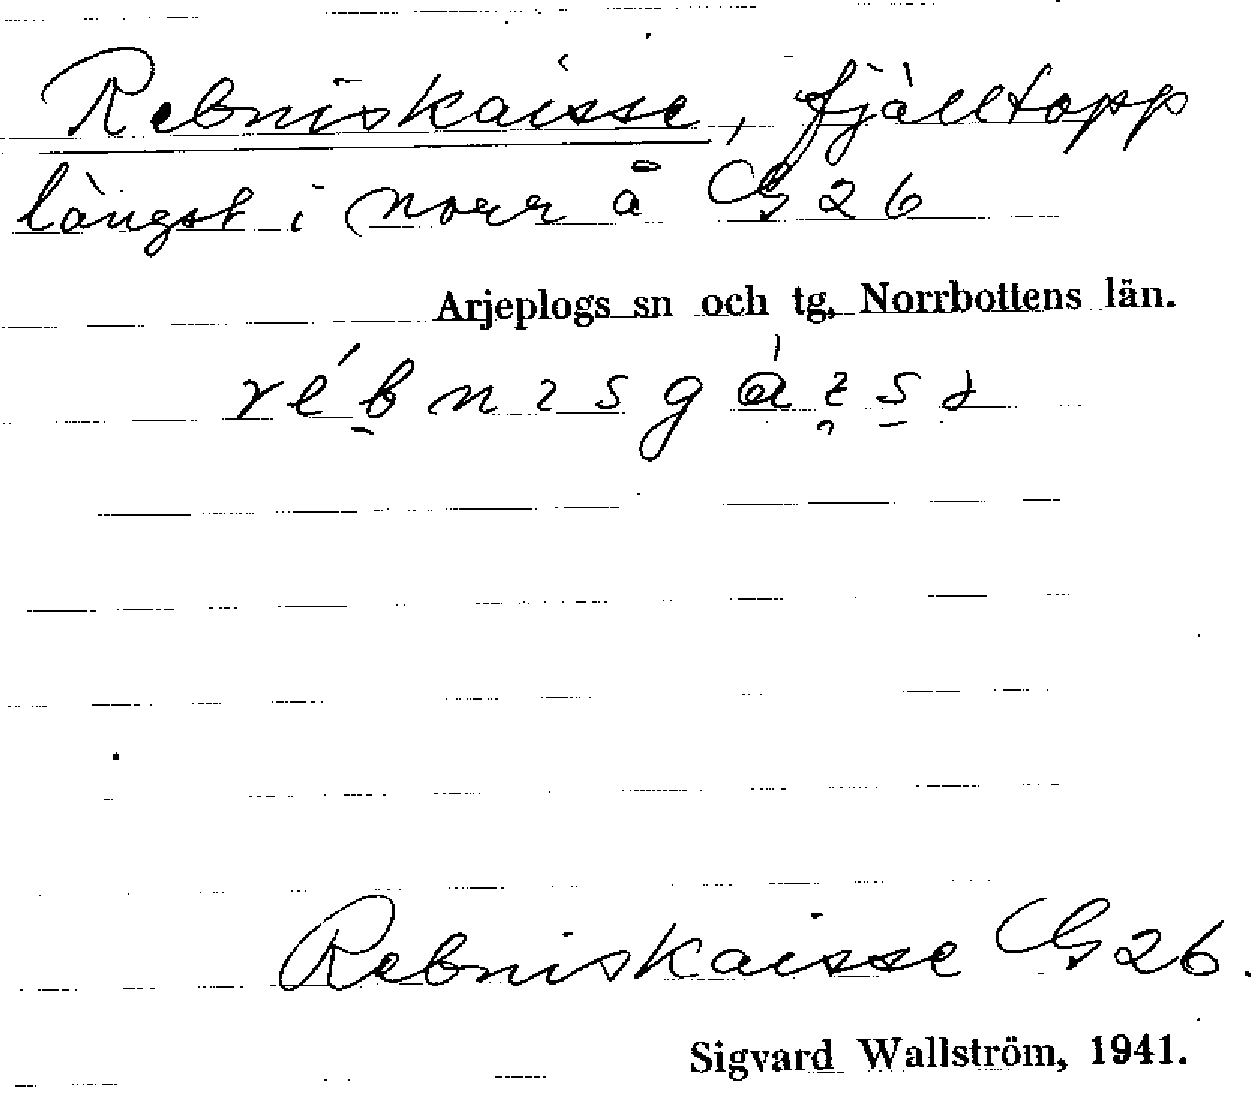 Rebniskaisse, fjälltopp
längst i norr å G 26
Arjeplogs sn och tg, Norrbottens län.
Rebniskaisse G 26.
Sigvard Wallström, 1941.